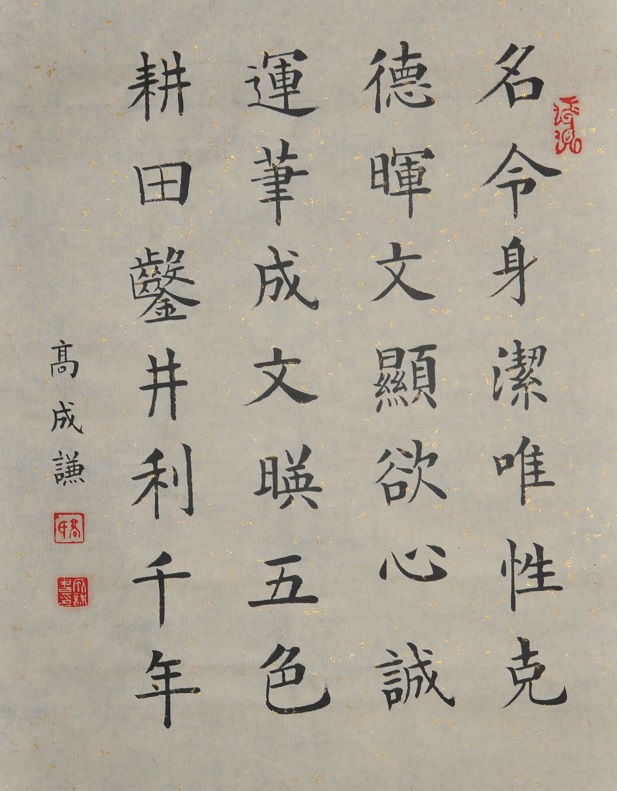 名令身潔唯性克
德暉文顯欲心誠
運筆成文暎五色
耕田鑿井利千年
高成謙